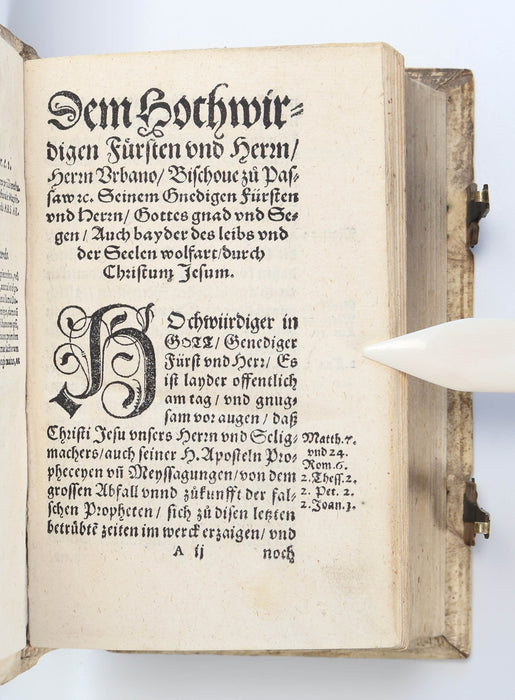 Dem Hochwir⸗
digen Fürsten vnd Herrn/
Herrn Vrbano/ Bischoue zů Pas⸗
saw ꝛc. Seinem Gnedigen Fürsten
vnd Herrn/ Gottes gnad vnd Se⸗
gen/ Auch bayder des leibs vnd
der Seelen wolfart/ durch
Christum Jesum.
HOchwürdiger in
GOTT/ Genediger
Fürst vnd Herr/ Es
ist layder offentlich
am tag/ vnd gnug⸗
sam vor augen/ daß
Christi Jesu vnsers Herrn vnd Selig⸗
machers/ auch seiner H. Aposteln Pro⸗
pheceyen vñ Weyssagungen/ von dem
grossen Abfall vnnd zůkunfft der fal⸗
schen Propheten/ sich zů disen letzten
betrůbtē zeiten im werck erzaigen/ vnd
Matth. 7.
vnd 24.
Rom. 6.
2. Thess. 2.
2. Pet. 2.
2. Joan. 1.
A ij
noch